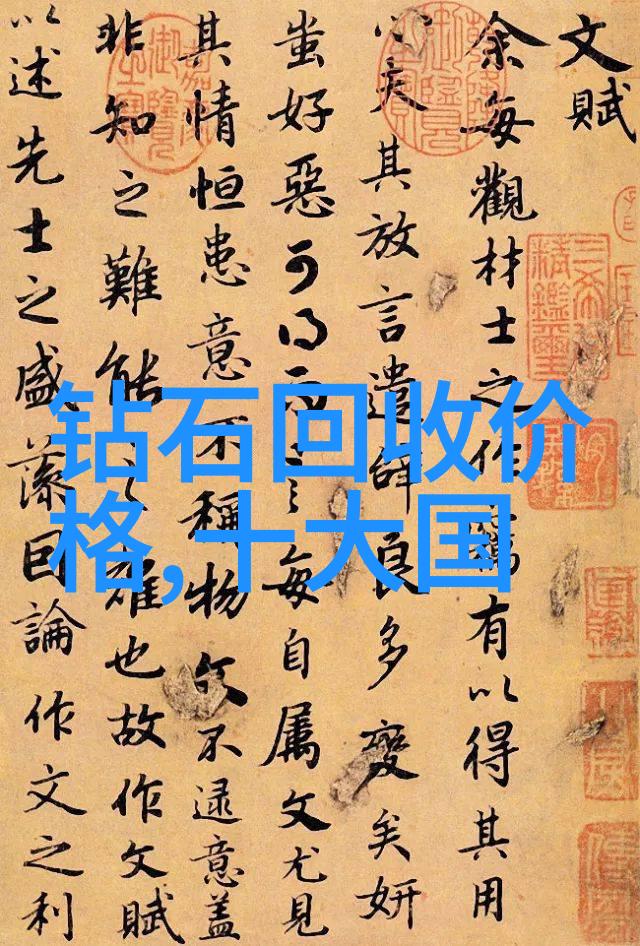 文賦
余每觀材士之作竊有以得其用
心夫其放言遣辭良多變矣妍
蚩好惡可得而言每自属文尤見
其情恒患意不稱物文不逮意盖
非知之難能之難也故作文賦
以述先士之盛藻因論作文之利
钻石回收价
格,十大国